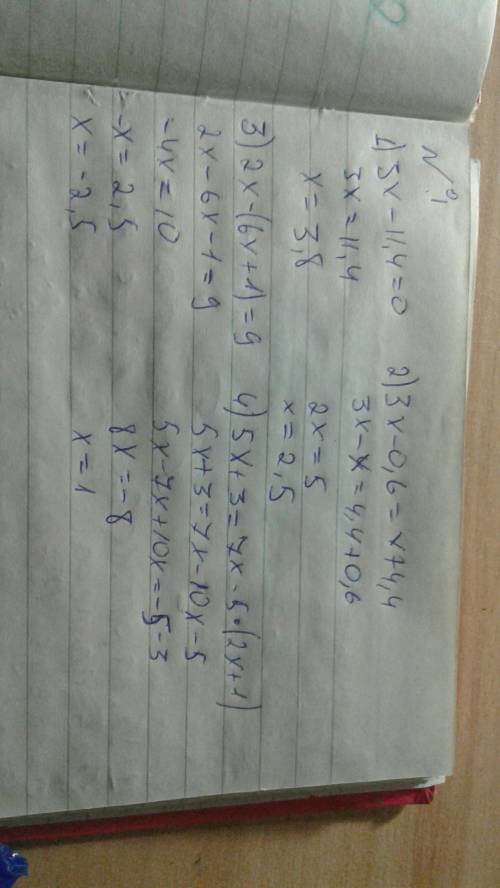 №1
1) 3x-11,4=0
3x=11,4
x=3,8
2) 3x-0,6=x+4,4
3x-x=4,4+0,6
2x=5
x=2,5
3) 2x-(6x+1)=9
2x-6x-1=9
-4x=10
-x=2,5
x=-2,5
4) 5x+3=7x-5·(2x+1)
5x+3=7x-10x-5
5x-7x+10x=-5-3
8x=-8
x=1